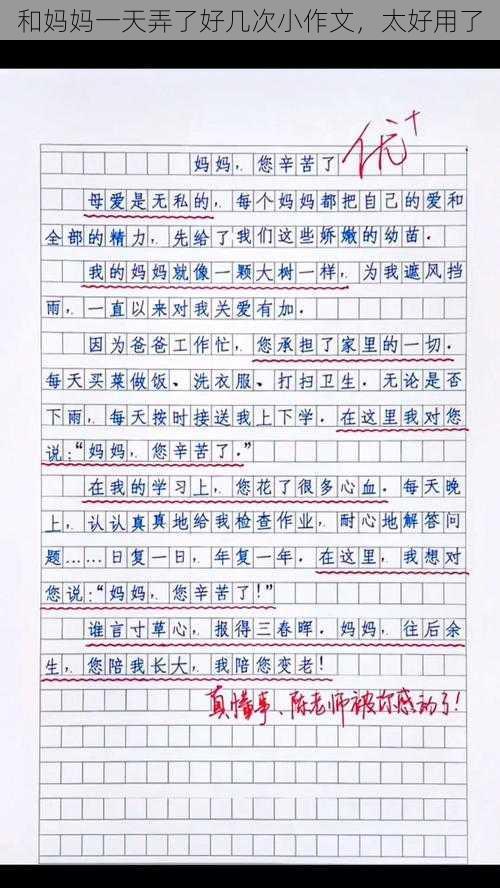 和妈妈一天弄了好几次小作文，太好用了
优+
妈妈，您辛苦了
母爱是无私的，每个妈妈都把自己的爱和
全部的精力，先给了我们这些娇嫩的幼苗．
我的妈妈就像一颗大树一样，为我遮风挡
雨，一直以来对我关爱有加．
因为爸爸工作忙，您承担了家里的一切．
每天买菜做饭、洗衣服、打扫卫生．无论是否
下雨，每天按时接送我上下学．在这里我对您
说：“妈妈，您辛苦了．”
在我的学习上，您花了很多心血．每天晚
上，认认真真地给我检查作业，耐心地解答问
题……日复一日，年复一年．在这里，我想对
您说：“妈妈，您辛苦了！”
谁言寸草心，报得三春晖．妈妈，往后余
生，您陪我长大，我陪您变老！
真懂事、陈老师被你感动了！